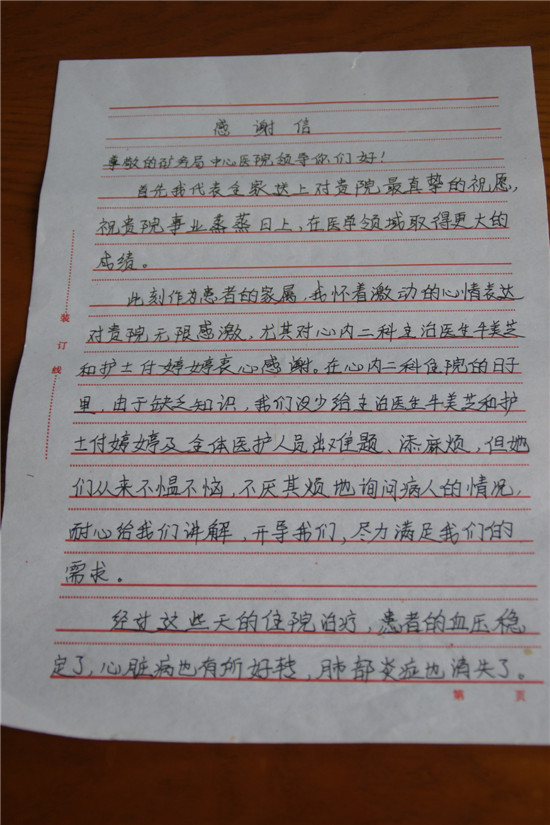 感谢信
尊敬的矿务局中心医院领导你们好！
首先我代表全家送上对贵院最真挚的祝愿，
祝贵院事业蒸蒸日上，在医学领域取得更大的
成绩。
此刻作为患者的家属，我怀着激动的心情表达
对贵院无限感激，尤其对心内二科主治医生牛美芝
和护士付婷婷衷心感谢。在心内二科住院的日子
里，由于缺乏知识，我们没少给主治医生牛美芝和护
士付婷婷及全体医护人员出难题、添麻烦，但她
们从来不愠不恼，不厌其烦地询问病人的情况，
耐心给我们讲解，开导我们，尽力满足我们的
需求。
经过这些天的住院治疗，患者的血压稳
定了，心脏病也有所好转，肺部炎症也消失了。
装订线
第 页